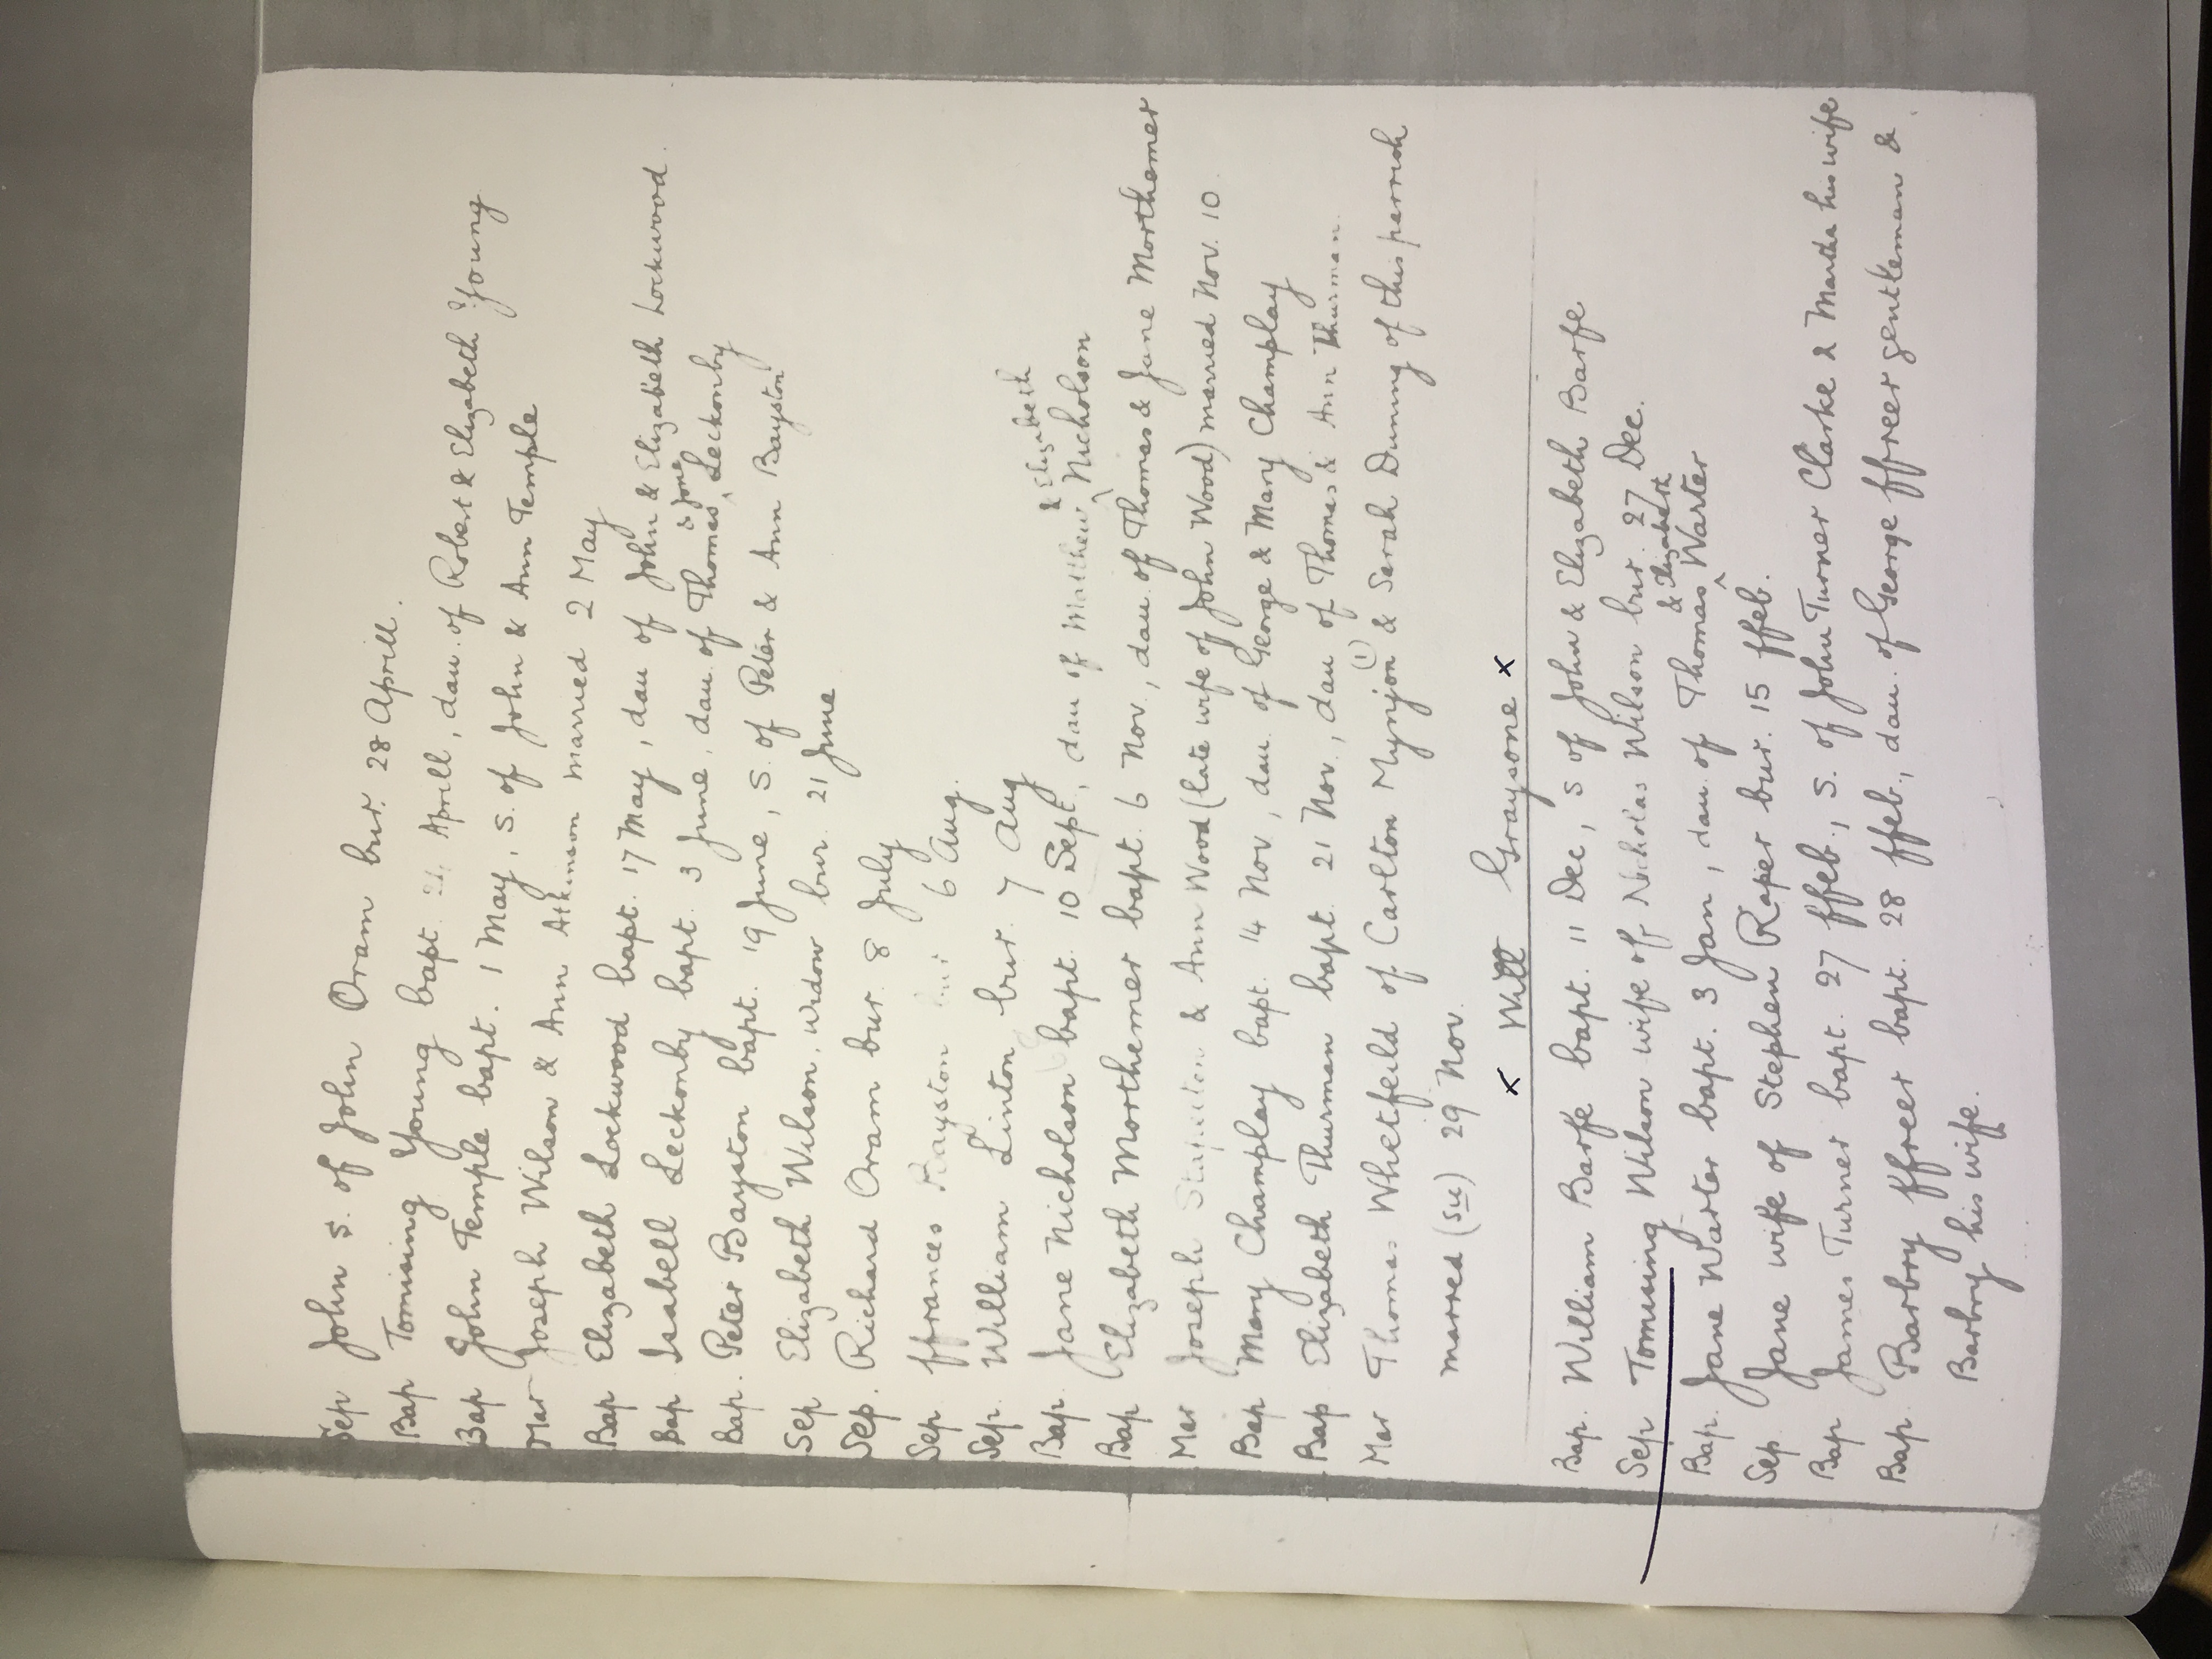 Sep John s. of John Oram bur. 28 Aprill.
Bap Tomising Young bapt. Aprill, dau. of Robert & Elizabeth Young
Bap John Temple bapt. 1 May, s. of John & Ann Temple
Mar Joseph Wilson & Ann Atkinson married 2 May
Bap Elizabeth Lockwood bapt. 17 May, dau of John & Elizabeth Lockwood.
Bap Isabell Leckonby bapt. 3 June, dau. of Thomas ^ & Jane Leckonby
Bap. Peter Bayston bapt. 19 June, s. of Peter & Ann Bayston
Sep Elizabeth Wilson, widow bur. 21 June
Sep. Richard Oram bur. 8 July
Sep ffrances Bayston bur 6 Aug.
Sep. William Linton bur. 7 Aug
Bap. Jane Nicholson bapt. 10 Sept., dau of Matthew ^ & Elizabeth Nicholson
Bap Elizabeth Morthemer bapt. 6 Nov., dau. of Thomas & Jane Morthemer
Mar Joseph & Ann Wood (late wife of John Wood) married Nov. 10.
Bap Mary Champlay bapt. 14 Nov, dau. of George & Mary Champlay
Bap Elizabeth Thurman bapt. 21 Nov., dau of Thomas & Ann Thurman
Mar Thomas Whetfeild of Carlton Mynjon (1) & Sarah Dunning of this parrish
marred (sic) 29 Nov.
x Will Graysone x
Bap. William Barfe bapt. 11 Dec, s of John & Elizabeth Barfe
Sep Tomising Wilson wife of Nicholas Wilson bur. 27 Dec.
Bap. Jane Warter bapt. 3 Jan, dau. of Thomas ^ & Elizabeth Warter
Sep Jane wife of Stephen Raper bur. 15 ffeb.
Bap James Turner bapt. 27 ffeb., s. of John Turner Clarke & Martha his wife
Bap. Barbry ffreer bapt. 28 ffeb., dau. of George ffreer gentleman &
Barbry his wife.